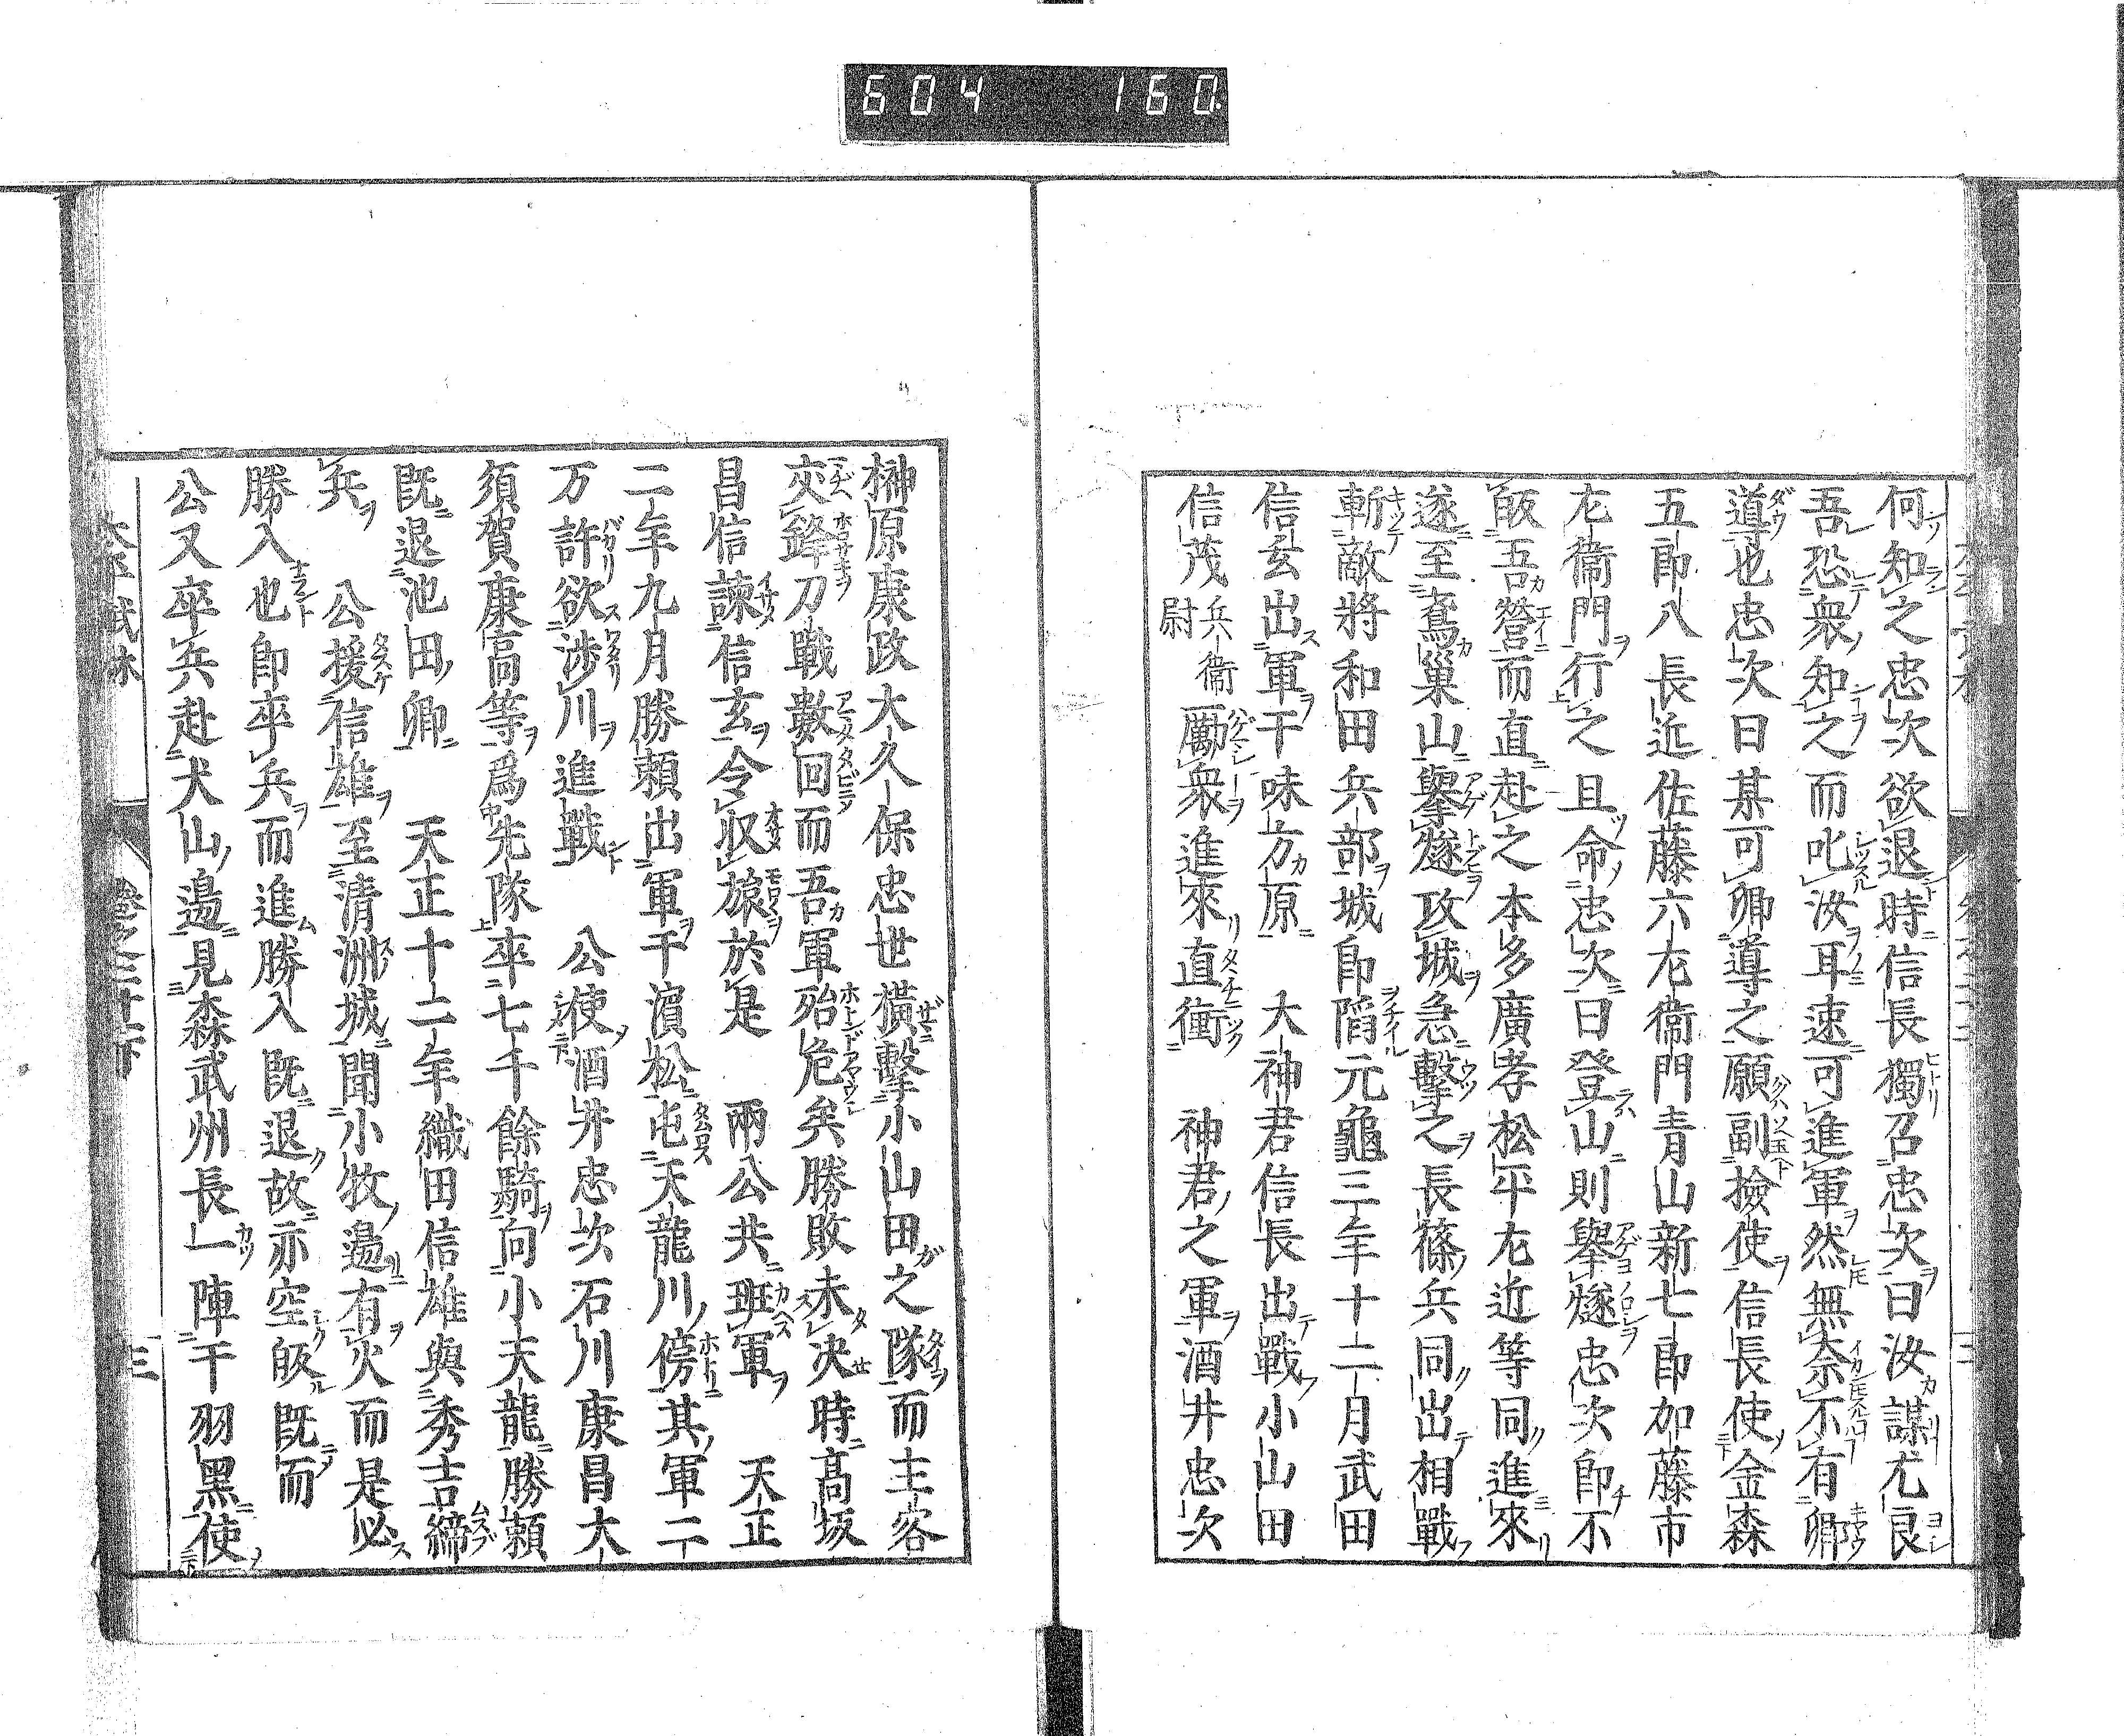 604 160
何知之忠次欲退時信長獨召忠次曰汝謀尤良
吾恐衆知之而叱汝耳速可進軍然無奈不有郷
導也忠次曰某可郷導之願副撿使信長使金森
五郎八長近佐藤六左衞門青山新七郎加藤市
左衞門行之且命忠次曰登山則擧燧忠次即不
皈吾營而直赴之本多廣孝松平左近等同進來
遂至鳶巢山擧燧攻城急擊之長篠兵同出相戰
斬敵將和田兵部城即䧟元龜三年十二月武田
信玄出軍于味方原 大神君信長出戰小山田
信茂兵衞尉勵衆進來直衝 神君之軍酒井忠次
榊原康政大久保忠世橫擊小山田之隊而主客
夾鋒刀戰數回而吾軍殆危矣勝敗未决時高坂
昌信諫信玄令収旅於是 兩公共班軍 天正
二年九月勝頼出軍于濵松屯天龍川傍其軍二
万許欲渉川進戰 公使酒井忠次石川康昌大
須賀康高等爲先隊卒七千餘騎向小天龍勝頼
既退池田郷 天正十二年織田信雄與秀吉締
兵 公援信雄至清洲城聞小牧邉有火而是必
勝入也即卒兵而進勝入既退故亦空皈既而
公又卒兵赴犬山邉見森武州長一陣于羽黑使
卷之三十下 三